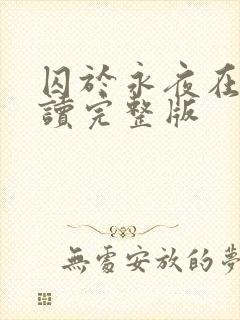 囚於永夜在
讀完整版
無處安放的夢